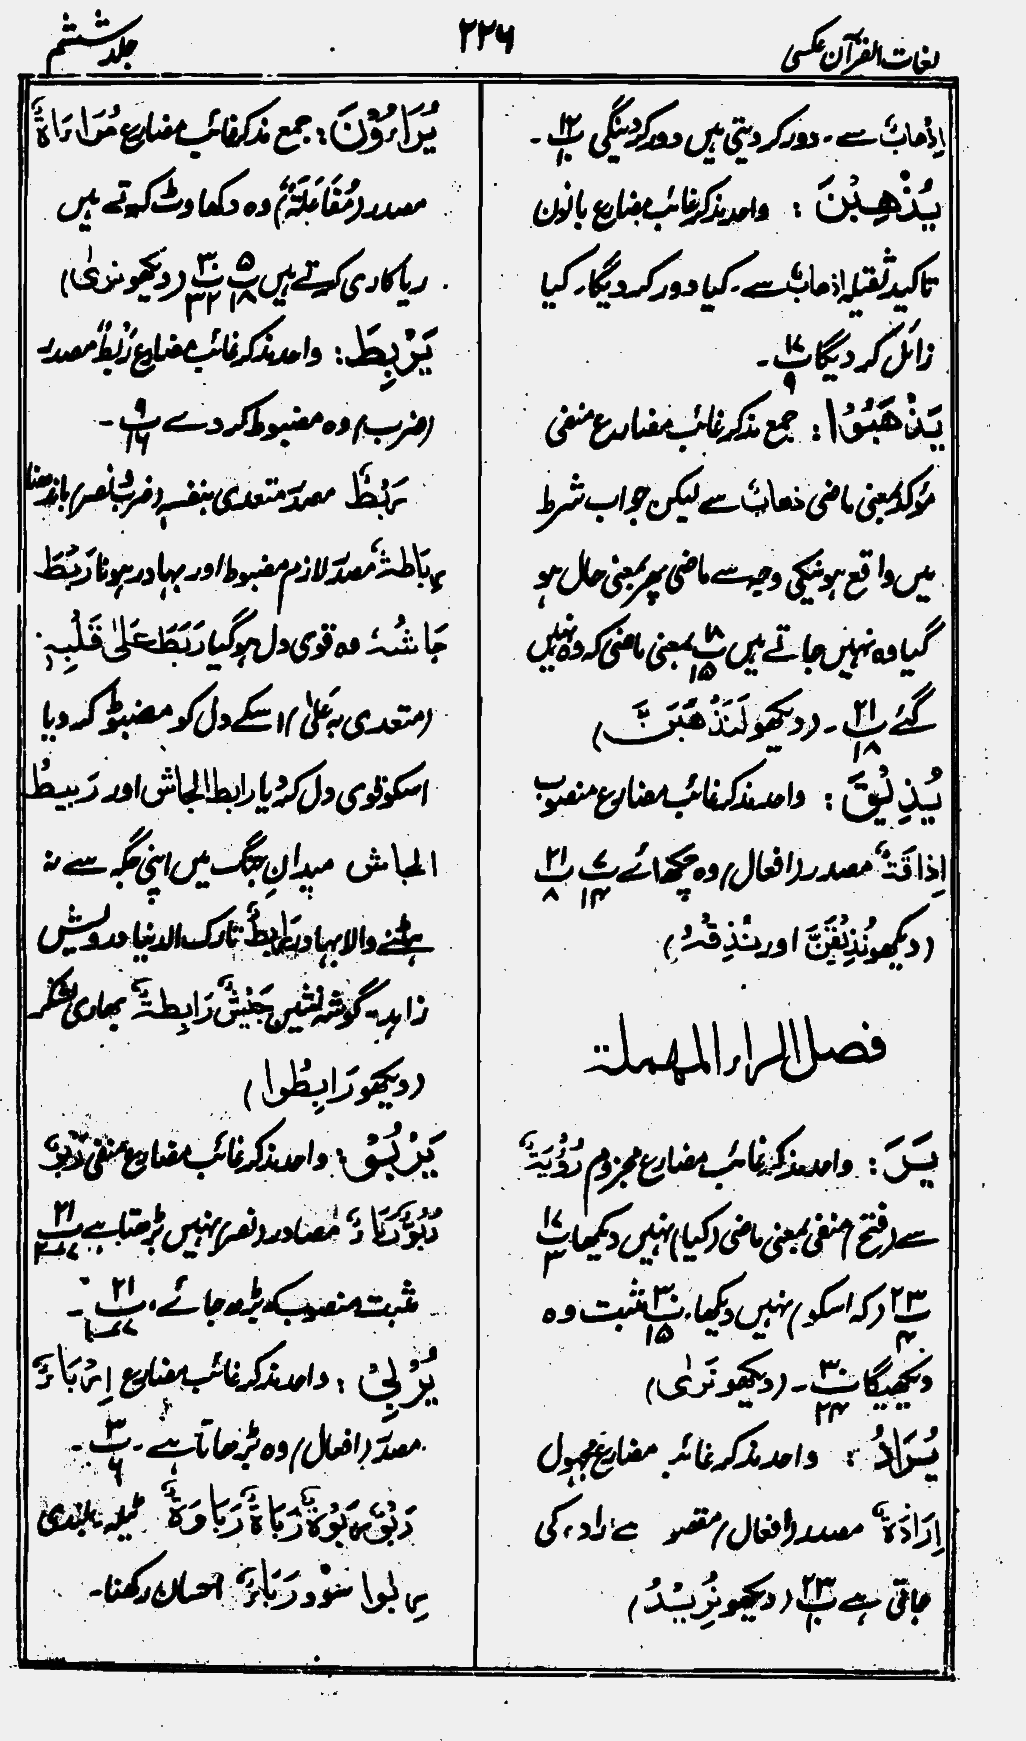 لغات القرآن عکسی
۲۲۶
جلد ششم
اِذْھابٌ سے۔ دور کر دیتی ہیں دور کر دینگی پ ۱۲ ۱۰۔
یُذْھِبَنَّ : واحد مذکر غائب مضارع بانون
تاکید ثقیلہ اِذھابٌ سے۔ کیا دور کر دیگا۔ کیا
زائل کر دیگا پ ۱۷ ۹۔
یَذْھَبُوْا : جمع مذکر غائب مضارع منفی
مؤکد بمعنی ماضی ذھابٌ سے لیکن جواب شرط
میں واقع ہونیکی وجہ سے ماضی پھر بمعنی حال ہو
گیا وہ نہیں جاتے ہیں پ ۱۸ ۱۵ بمعنی ماضی کہ وہ نہیں
گئے پ ۲۱ ۱۸۔ (دیکھو لَنَذْھَبَنَّ)
یُذِیْقَ : واحد مذکر غائب مضارع منصوب
اِذاقَۃٌ مصدر (افعال) وہ چکھائے پ ۷ ۱۴ پ ۲۱ ۸
(دیکھو نُذِیْقَنَّ اور نُذِقْہُ)
فصل الراء المھملۃ
یَرَ : واحد مذکر غائب مضارع مجزوم رُؤْیَۃٌ
سے (فتح) منفی بمعنی ماضی (کیا) نہیں دیکھا پ ۱۷ ۳
پ ۲۳ ۴ (کہ اسکو) نہیں دیکھا، پ ۳۰ ۱۵ مثبت وہ
دیکھیگا پ ۳۰ ۲۴۔ (دیکھو نَرٰی)
یُرَادُ : واحد مذکر غائب مضارع مجہول
اِرَادَۃٌ مصدر (افعال) مقصد ہے، اراد، کی
جاتی ہے پ ۲۳ ۱۰ (دیکھو نُرِیْدُ)
یُرَاءُوْنَ : جمع مذکر غائب مضارع مُرَاءَاۃٌ
مصدر (مُفَاعَلَۃٌ) وہ دکھاوٹ کرتے ہیں
ریاکاری کرتے ہیں پ ۵ ۱۸ پ ۳۰ ۳۲ (دیکھو نرٰی)
یَرْبِطَ : واحد مذکر غائب مضارع رَبْطٌ مصدر
(ضرب) وہ مضبوط کر دے پ ۹ ۱۶۔
رَبْطٌ مصدر متعدی بنفسہٖ (ضرب و نصر) باندھنا
رِبَاطۃٌ مصدر لازم مضبوط اور بہادر ہونا رَبَطَ
جَاشُہٗ وہ قوی دل ہو گیا رَبَطَ عَلیٰ قَلْبِہٖ
(متعدی بہ عَلیٰ) اسکے دل کو مضبوط کر دیا
اسکو قوی دل کر دیا رابط الجاش اور رَبِیطُ
الجاش میدانِ جنگ میں اپنی جگہ سے نہ
ہٹنے والا بہادر رَابِطٌ تارک الدنیا درویش
زاہد۔ گوشہ نشین جَیْشٌ رَابِطۃٌ بھاری لشکر
(دیکھو رَابِطُوا)
یَرْبُوْ : واحد مذکر غائب مضارع منفی رَبْوٌ
رُبُوٌّ رَبَاءٌ مصادر (نصر) نہیں بڑھتا ہے پ ۲۱ ۷
مثبت منصوب کہ بڑھ جائے، پ ۲۱ ۷۔
یُرْبِیْ : واحد مذکر غائب مضارع اِرْبَاءٌ
مصدر (افعال) وہ بڑھاتا ہے۔ پ ۳ ۶۔
رَبْوٌ رَبْوَۃٌ رَبَاۃٌ رَبَاوَۃٌ ٹیلہ، بلندی
رِبٰوا سُوْد رَبَاءٌ احسان رکھنا۔